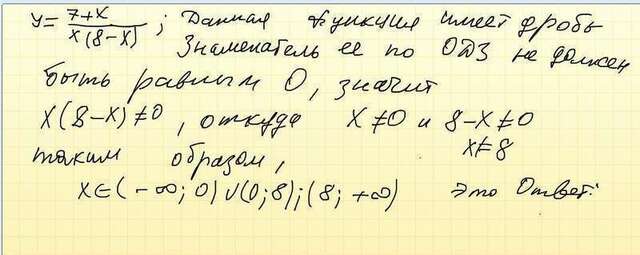 y = 7+x / x(8-x) ; Данная функция имеет дробь
Знаменатель ее по ОДЗ не должен
быть равным 0, значит
x(8-x)≠0, откуда x≠0 и 8-x≠0
x≠8
таким образом,
x∈(-∞; 0)∪(0; 8);(8; +∞) это Ответ: